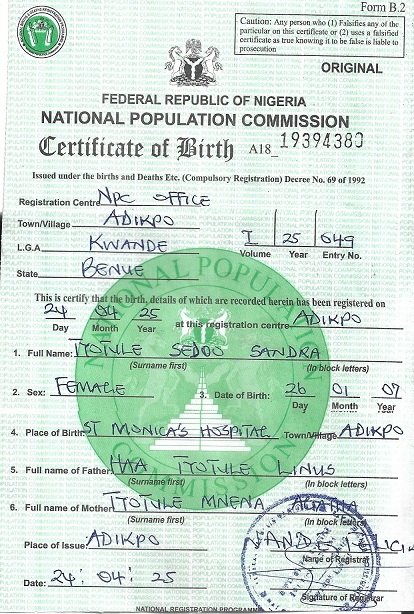 Form B.2
Caution: Any person who (1) Falsifies any of the
particular on this certificate or (2) uses a falsified
certificate as true knowing it to be false is liable to
prosecution
ORIGINAL
FEDERAL REPUBLIC OF NIGERIA
NATIONAL POPULATION COMMISSION
Certificate of Birth A18_ 19394380
Issued under the births and Deaths Etc. (Compulsory Registration) Decree No. 69 of 1992
Registration Centre NPC OFFICE
Town/Village ADIKPO
L.G.A KWANDE I 25 649
Volume Year Entry No.
State BENUE
This is certify that the birth, details of which are recorded herein has been registered on
24 04 25 at this registration centre ADIKPO
Day Month Year
1. Full Name: ITYOTULE SEDOO SANDRA
(Surname first) (In block letters)
2. Sex: FEMALE 3. Date of Birth: 26 01 07
Day Month Year
4. Place of Birth: ST MONICA'S HOSPITAL Town/Village ADIKPO
5. Full name of Father: LINUS
(Surname first) (In block letters)
6. Full name of Mother MNENA AGATHA
(Surname first) (In block letters)
Place of Issue: ADIKPO
Name of Registrar
Date: 24:04:25
Signature of Registrar
NATIONAL REGISTRATION PROGRAMME
NATIONAL POPULATION COMMISSION